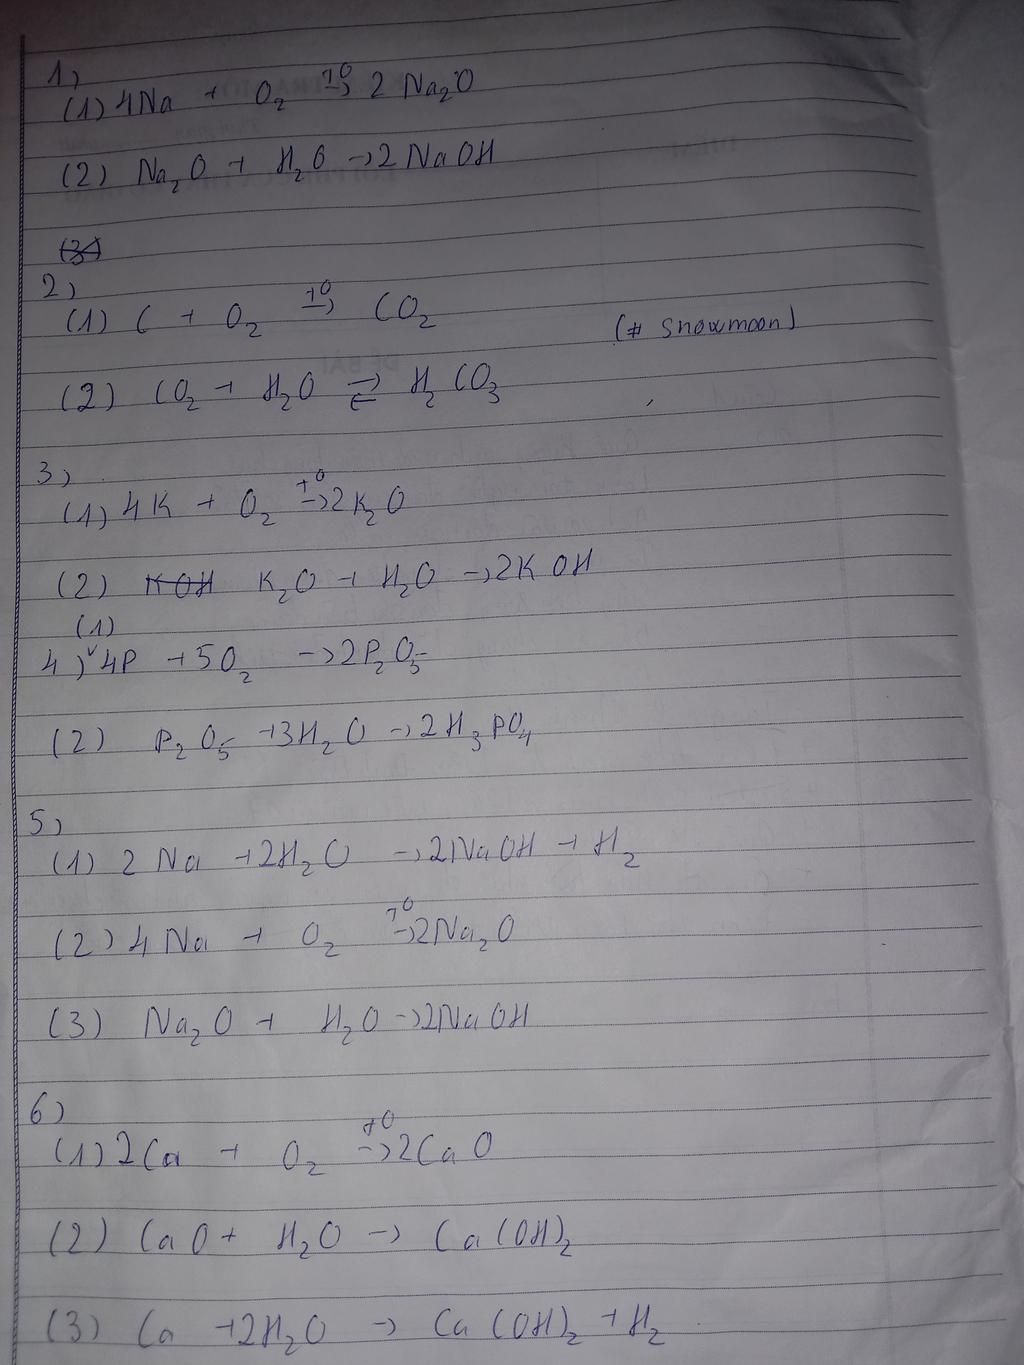 1)
(1) 4Na + O₂ t⁰→ 2 Na₂O
(2) Na₂O + H₂O → 2 NaOH
(3)
2)
(1) C + O₂ t⁰→ CO₂
(# snowmoon)
(2) CO₂ + H₂O ⇌ H₂CO₃
3)
(1) 4K + O₂ t⁰→ 2K₂O
(2) KOH K₂O + H₂O → 2KOH
(1)
4) 4P + 5O₂ → 2P₂O₅
(2) P₂O₅ + 3H₂O → 2H₃PO₄
5)
(1) 2 Na + 2H₂O → 2NaOH + H₂
(2) 4 Na + O₂ t⁰→ 2Na₂O
(3) Na₂O + H₂O → 2NaOH
6)
(1) 2Ca + O₂ t⁰→ 2CaO
(2) CaO + H₂O → Ca(OH)₂
(3) Ca + 2H₂O → Ca(OH)₂ + H₂